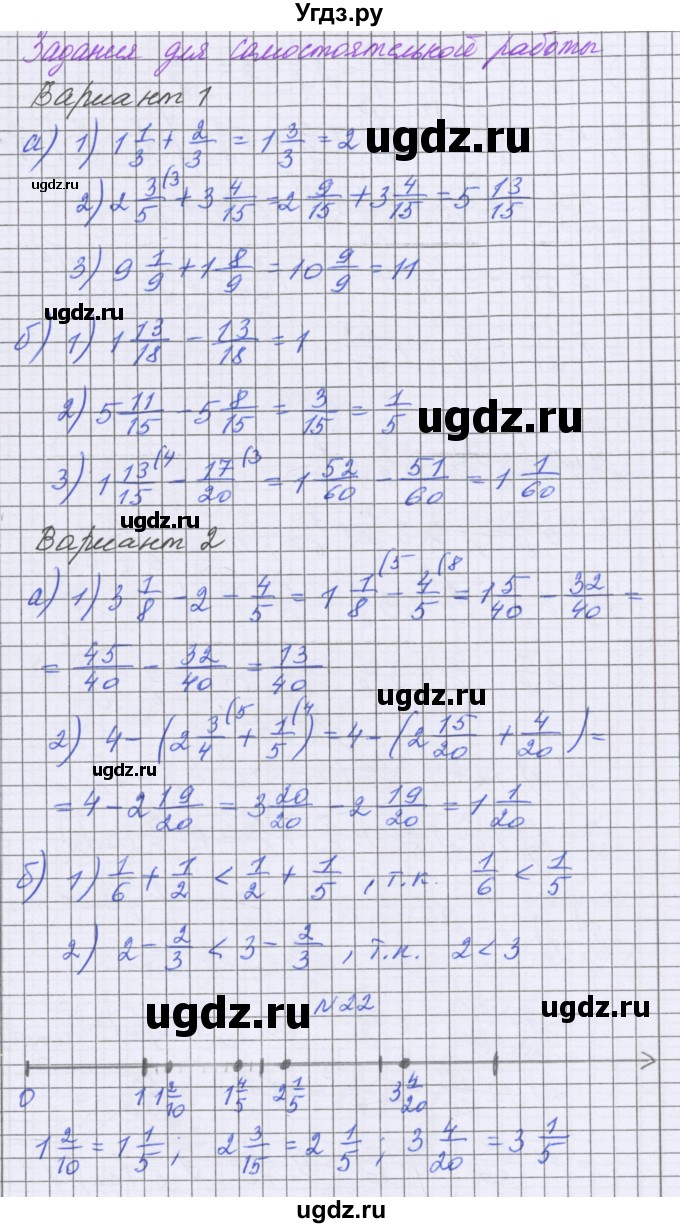 Угдз.ру
Задания для самостоятельной работы
Вариант 1
а) 1) 1 1/3 + 2/3 = 1 3/3 = 2
ugdz.ru
ugdz.ru
2) 2 3/5 (3 + 3 4/15 = 2 9/15 + 3 4/15 = 5 13/15
3) 9 1/9 + 1 8/9 = 10 9/9 = 11
ugdz.ru
б) 1) 1 13/18 - 13/18 = 1
2) 5 11/15 - 5 8/15 = 3/15 = 1/5
ugdz.ru
3) 1 13/15 (4 - 17/20 (3 = 1 52/60 - 51/60 = 1 1/60
ugdz.ru
Вариант 2
а) 1) 3 1/8 - 2 - 4/5 = 1 1/8 (5 - 4/5 (8 = 1 5/40 - 32/40 =
= 45/40 - 32/40 = 13/40
ugdz.ru
2) 4 - (2 3/4 (5 + 1/5 (4 ) = 4 - (2 15/20 + 4/20) =
ugdz.ru
= 4 - 2 19/20 = 3 20/20 - 2 19/20 = 1 1/20
б) 1) 1/6 + 1/2 < 1/2 + 1/5, т.к. 1/6 < 1/5
2) 2 - 2/3 < 3 - 2/3, т.к. 2 < 3
ugdz.ru
№22
ugdz.ru
0 1 1 2/10 1 4/5 2 1/5 3 4/20
1 2/10 = 1 1/5; 2 3/15 = 2 1/5; 3 4/20 = 3 1/5
ugdz.ru
ugdz.ru